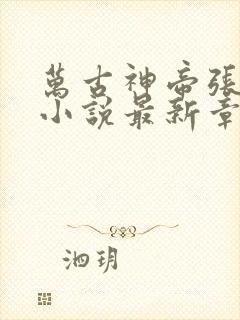 萬古神帝張
小說最新章
泗玥